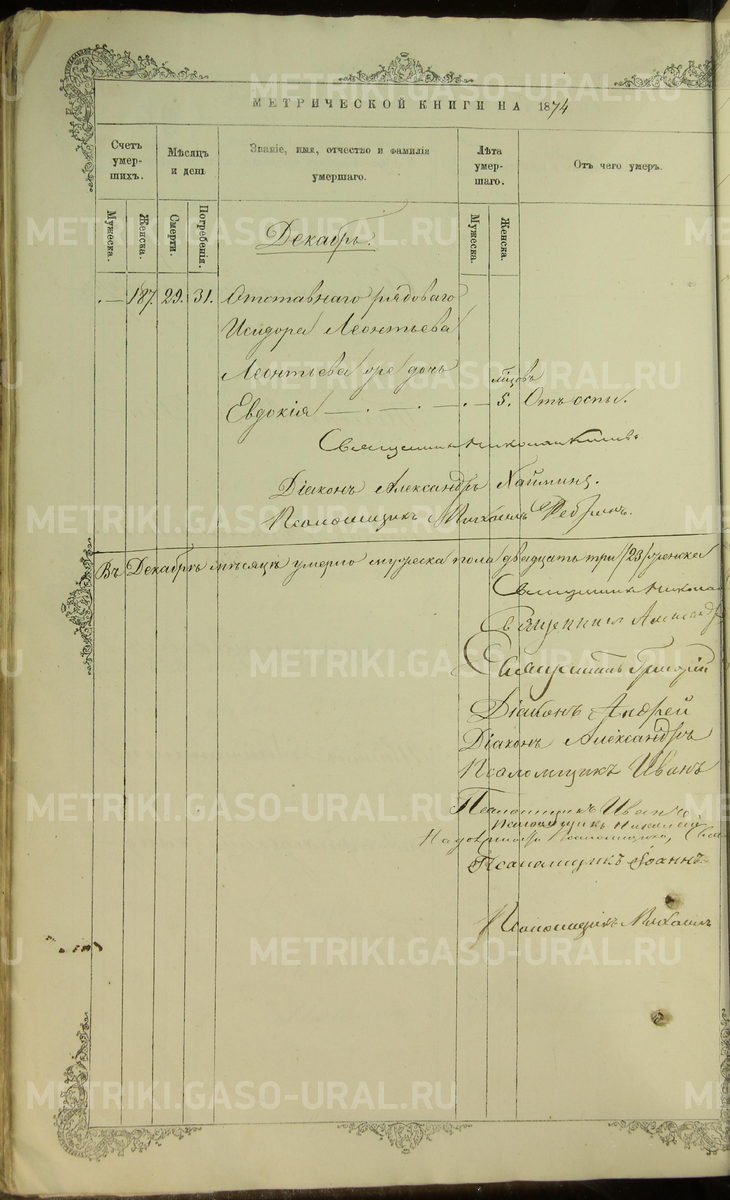 МЕТРИЧЕСКОЙ КНИГИ НА 1874
Счетъ умер-шихъ.
Мѣсяцъ и день
Званіе, имя, отчество и фамилія умершаго.
Лѣта умер-шаго.
Отъ чего умеръ.
Мужеска.
Женска.
Смерти.
Погребенія.
Мужеска.
Женска.
Декабрь.
187. 29. 31. Отставнаго рядоваго
Исидора Леонтьева
Леонтьева дочь
мѣсяцовъ
Евдокія 5. Отъ оспы.
Священникъ Николай
Діаконъ Александръ
Псаломщикъ Михаилъ
Въ Декабрѣ мѣсяцѣ умерло мужеска пола двадцать три /23/ женска
Священникъ Николай
Священникъ Александръ
Священникъ Григорій
Діаконъ Андрей
Діаконъ Александръ
Псаломщикъ Иванъ
Псаломщикъ Иванъ
Псаломщикъ Николай
Псаломщикъ Іоаннъ
Псаломщикъ Михаилъ
METRIKI.GASO-URAL.RU